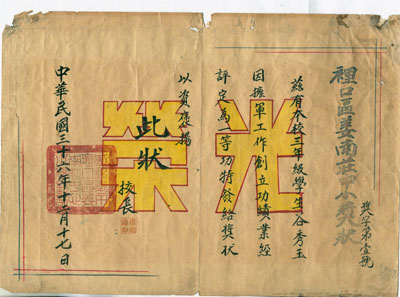 裡口區姜南莊中小獎狀
獎字第壹號
茲有本校三年級學生谷秀玉
因擁軍工作創立功績業經
評定為一等功特發給獎狀
以資褒揚
此狀
校長
中華民國三十六年十二月十七日
光榮